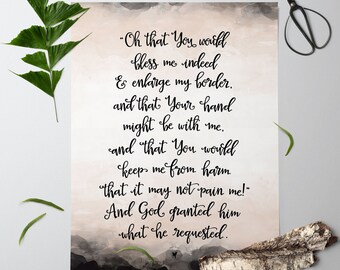 "Oh that You would
bless me indeed
& enlarge my border,
and that Your hand
might be with me,
and that You would
keep me from harm
"that it may not pain me!"
And God granted him
what he requested.